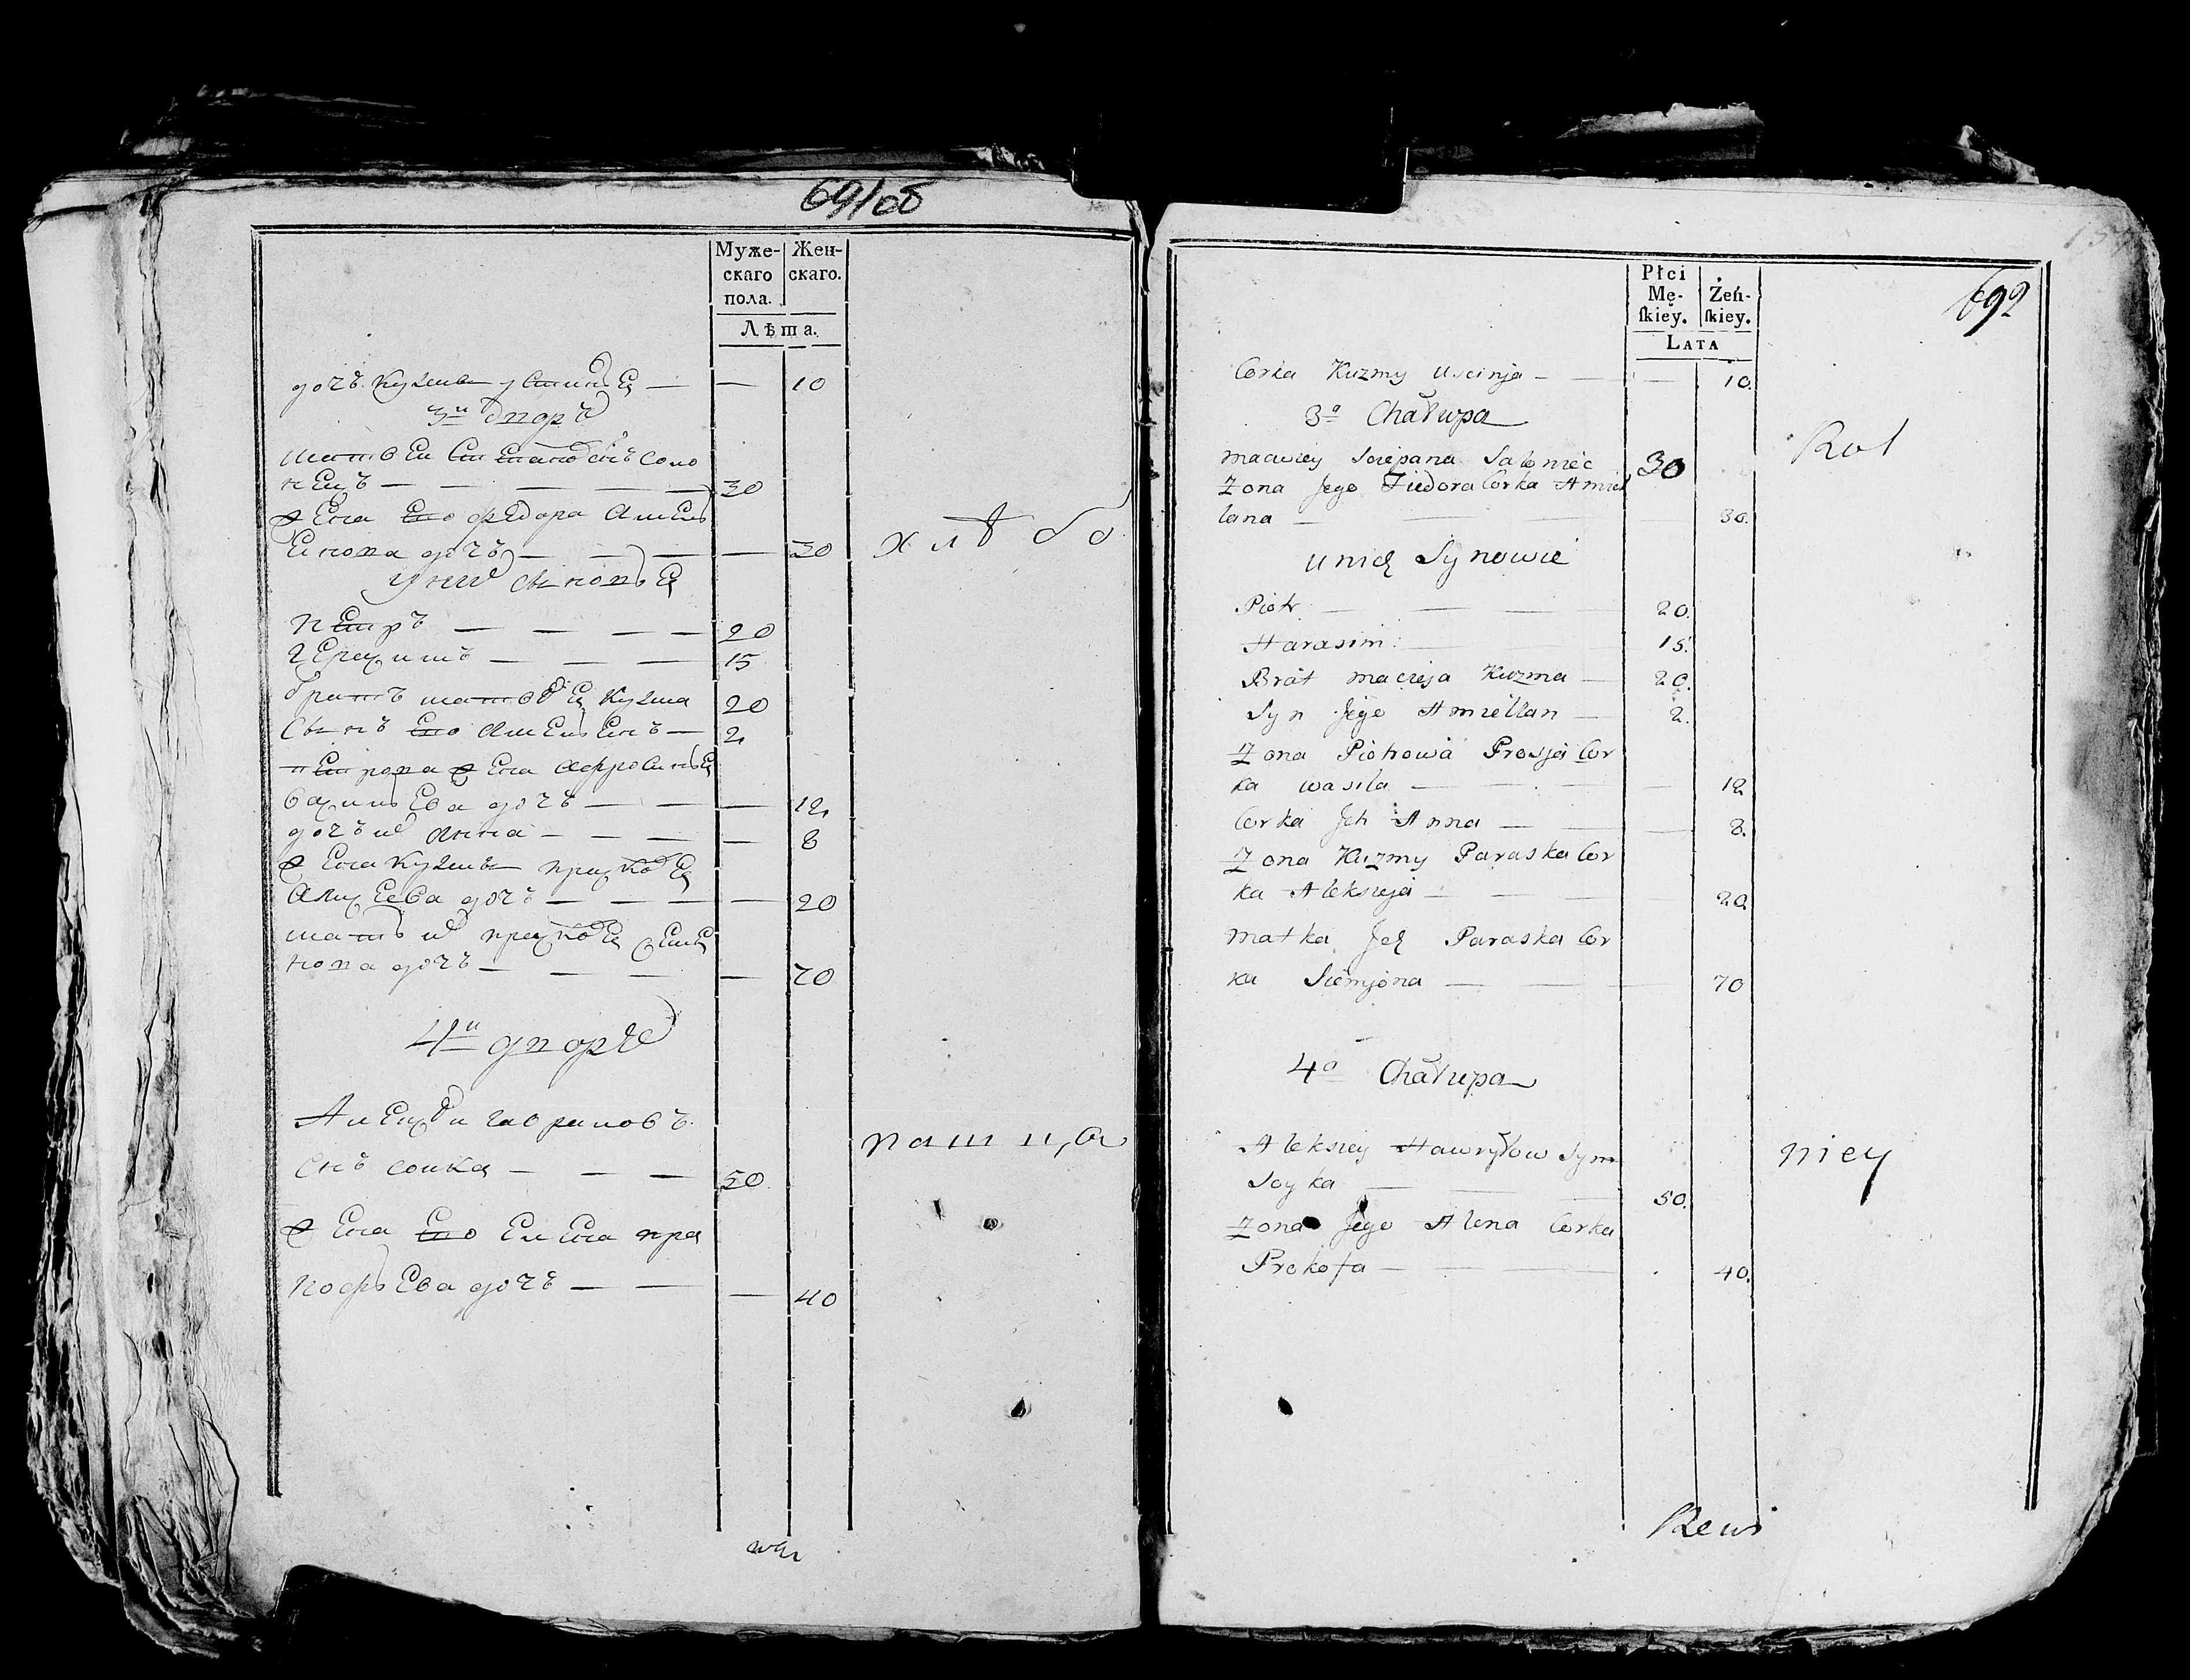 Муже-
скаго
пола.
Жен-
скаго.
Лѣта.
дочъ Кузмы — — 10
3й дворъ
матвей Степановъ снъ соло
нецъ — — — — 30
жена Его федора амель
Енова дочъ — — — — 30
у них сыновья
пЕтръ — — — — 20
герасимъ — — — 15
братъ матвея кузма 20
сынъ Его амельенъ — 2
пЕтрова жена афросинья
василЬЕва дочъ — — — 12
дочъ их анна — — — — 8
жена кузмы прасковя
алексЕева дочъ — — — — 20
мать их прасковя семе
нова дочъ — — — — 70
4й дворъ
АлЕксѣй гавриловъ
снъ сойка — — — 50
жена Его Елена пра
кофьЕва дочъ — — — 40
хлѣбо
пашца
Płci
Mę-
ſkiey.
Żeń-
ſkiey.
LATA
692
Corka Kuzmy Uscinja — — — 10.
3a Chałupa
maciey Sciepana Sałoniec 30
Zona Jego Fiedora Corka Amiel
lana — — — 30.
unich Synowie
Piotr — — — 20.
Harasim — 15.
Brat macieja Kuzma — 20.
Syn Jego Amiellan — 2.
Zona Piotrowa Prosja Cor
ka wasila — — — — 12
Corka Jch Anna — — — 8.
Zona Kuzmy Paraska Cor
ka Aleksieja — — — — 20.
Matka Jch Paraska Cor
ka Siemjona — — — 70
4a Chałupa
Aleksiey Hawryłow Syn
Soyka — — — 50.
Zona Jego Alena Corka
Prokofa — — — 40.
Rol
niey
Rewi